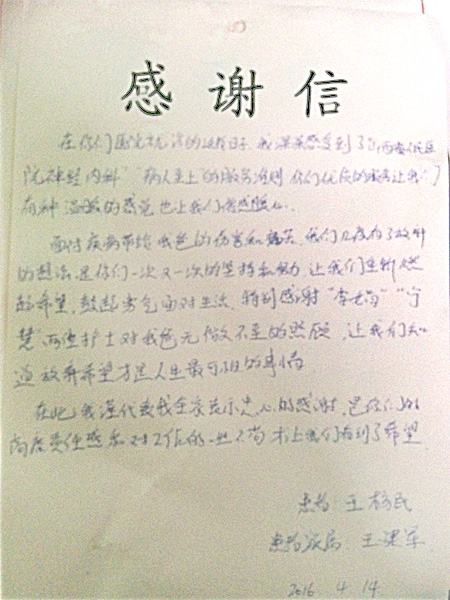 感谢信
在你们医院就诊的这些日子,我深深感受到了西安人民医
院神经内科"病人至上"的服务准则 你们优质的服务让我们
有种温暖的感觉也让我们倍感暖心.
面对疾病带给我爸的伤害和痛苦,我们几度有了放弃
的想法,是你们一次又一次的坚持和鼓励 让我们重新燃
起希望,鼓起勇气面对生活,特别感谢"李
慧"两位护士对我爸无微不至的照顾,让我们知
道放弃希望才是人生最可怕的事情
在此,我谨代表我全家表示衷心的感谢,是你们的
高度责任感和对工作的一丝不苟 才让我们看到了希望
患者 王
患者家属 王建军
2016 4 14